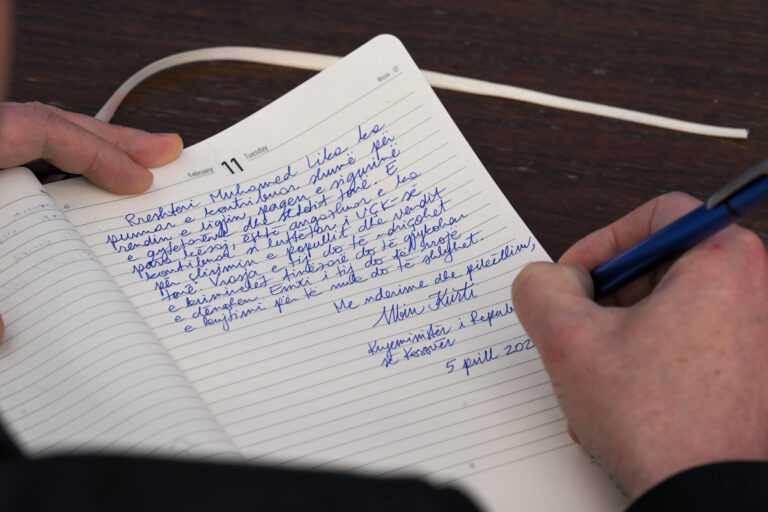 Week 07
February 11 Tuesday
Rreshteri Muhamed Lika ka
punuar e kontribuar shumë për
rendin e ligjin, paqen e sigurinë
e qytetarëve dhe shtetit tonë. E
para kësaj, është angazhuar e ka
kontribuar si luftëtar i UÇK-së
për çlirimin e popullit dhe vendit
tonë. Vrasja e tij do të ndriçohet
e kriminelët tinëzarë do të gjykohen
e dënohen. Emri i tij do të jetojë
e kujtimi për të nuk do të shlyhet.
Me nderime dhe pikëllim,
Albin Kurti
Kryeministër i Republ
së Kosovës
5 prill 202